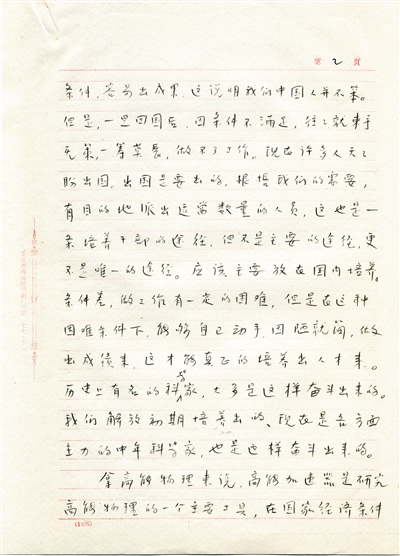 第 2 页
条件，容易出成果，这说明我们中国人并不笨。
但是，一旦回国后，因条件不满足，往往就束手
无策，一筹莫展，做不了工作。现在许多人天天
盼出国，出国是要去的，根据我们的需要，
有目的地派出适当数量的人员，这也是一
条培养干部的途径，但不是主要的途径，更
不是唯一的途径。应该主要放在国内培养。
条件差，做工作有一定的困难，但是在这种
困难条件下，能够自己动手，因陋就简，做
出成绩来，这才能真正的培养出人才来。
历史上有名的科学家，大多是这样奋斗出来的。
我们解放初期培养出的、现在是各方面
主力的中年科学家，也是这样奋斗出来的。
拿高能物理来说，高能加速器是研究
高能物理的一个主要工具，在国家经济条件